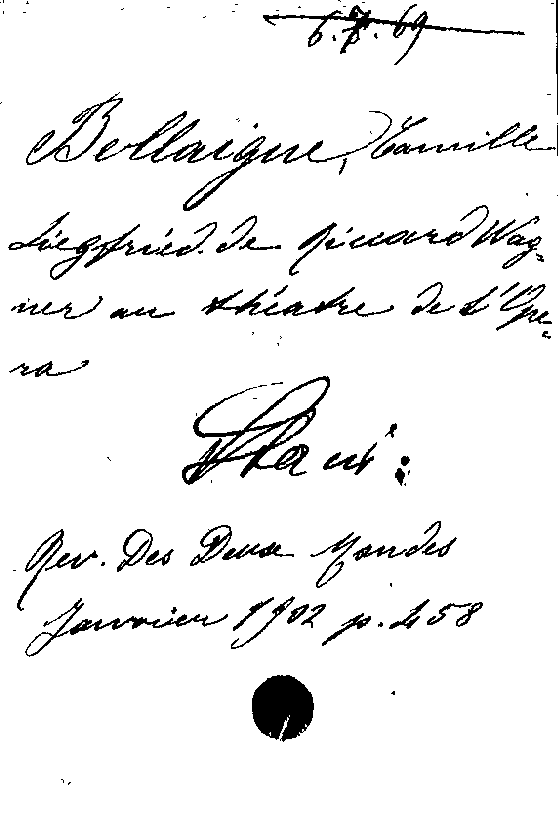 6.7.69
Bellaigue, Camille
Siegfried de Riccard Wag-
ner au théatre de l'Opé-
ra
Rev. Des Deux Mondes
Janvier 1902 p. 458